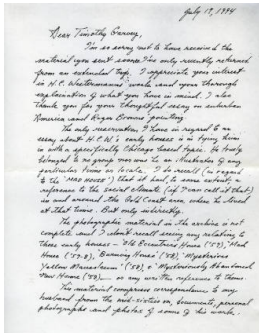 July 18, 1994
Dear Timothy Garvey,
I'm so sorry not to have received the
material you sent sooner. I've only recently returned
from an extended trip. I appreciate your interest
in H.C. Westermann's work and your thorough
explanation of what you have in mind. I also
thank you for your thoughtful essay on suburban
America and Roger Brown's painting.
The only reservation I have in regard to an
essay about H.C.W.'s early houses is in tying them
in with a specifically Chicago based topic. He truly
belonged to no group nor was he an illustrator of any
particular place or locale. I do recall (in regard
to the "MAD HOUSE") that it had to some extent a
reference to the social climate (if I can call it that)
in and around the Gold Coast area, where he lived
at that time. But only indirectly.
The photographic material in the archive is not
complete and I don't recall seeing any relating to
these early houses — "Old Eccentric's House ('57), "Mad
House ('57-8), "Burning House" ('58), "Mysterious
Yellow Mausoleum" ('58), or "Mysteriously Abandoned
New Home" ('58), or any written reference to them.
The material comprises correspondence to my
husband from the mid-sixties on, documents, personal
photographs and photos of some of his work.